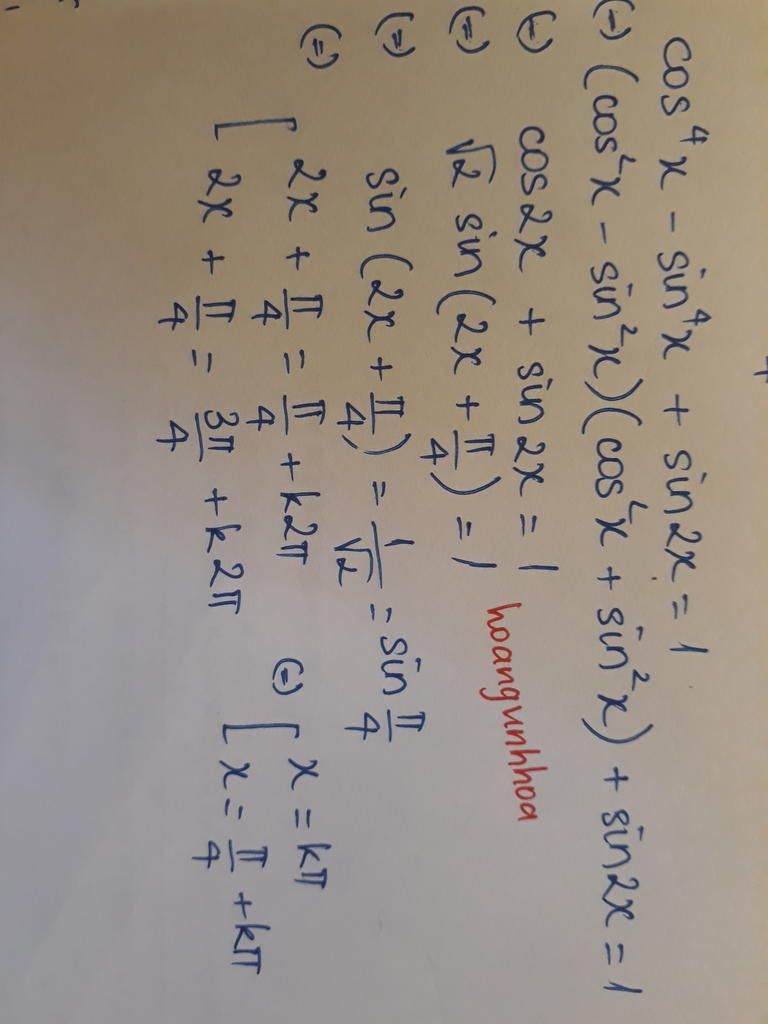 cos⁴x - sin⁴x + sin2x = 1
(=) (cos²x - sin²x)(cos²x + sin²x) + sin2x = 1
(=) cos2x + sin2x = 1
hoangunhhoa
(=) √2 sin(2x + π/4) = 1
(=) sin(2x + π/4) = 1/√2 = sin π/4
(=) [ 2x + π/4 = π/4 + k2π (=) [ x = kπ
2x + π/4 = 3π/4 + k2π x = π/4 + kπ